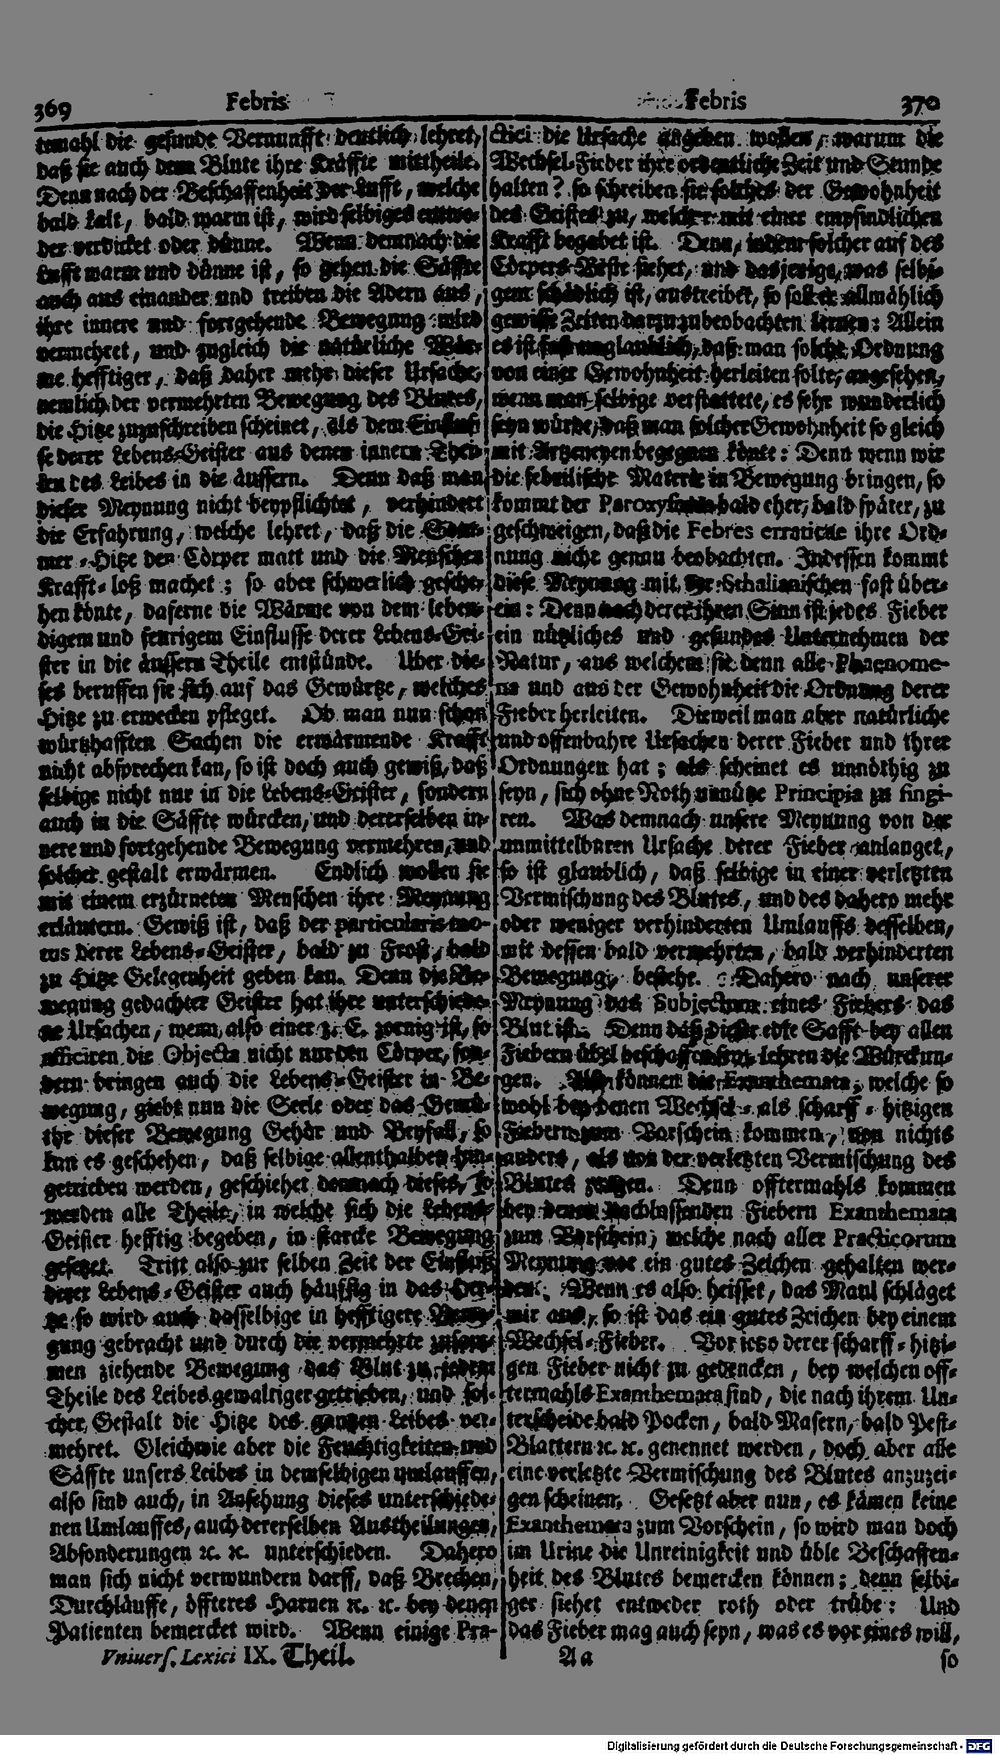 369 Febris
Febris 370
temahl die gesunde Vernunfft deutlich lehret,
daß sie auch dem Blute ihre Kräffte mittheile.
Denn nach der Beschaffenheit der Lufft, welche
bald kalt, bald warm ist, wird selbiges entwe-
der verdicket oder dünne. Wenn demnach die
Lufft warm und dünne ist, so gehen die Säffte
auch aus einander und treiben die Adern aus,
ihre innere und fortgehende Bewegung wird
vermehret, und zugleich die natürliche Wär-
me hefftiger, daß daher mehr dieser Ursache,
nemlich der vermehrten Bewegung des Blutes,
die Hitze zuzuschreiben scheinet, als dem Einflus-
se derer Lebens-Geister aus denen innern Thei-
len des Leibes in die äussern. Denn daß man
dieser Meynung nicht beypflichtet, verhindert
die Erfahrung, welche lehret, daß die Som-
mer-Hitze den Cörper matt und die Menschen
Krafft-loß machet; so aber schwerlich gesche-
hen könte, daferne die Wärme von dem leben-
digem und feurigem Einflusse derer Lebens-Gei-
ster in die äussern Theile entstünde. Uber die-
ses beruffen sie sich auf das Gewürtze, welches
Hitze zu erwecken pfleget. Ob man nun schon
würtzhafften Sachen die erwärmende Krafft
nicht absprechen kan, so ist doch auch gewiß, daß
selbige nicht nur in die Lebens-Geister, sondern
auch in die Säffte würcken, und dererselben in-
nere und fortgehende Bewegung vermehren, und
solcher gestalt erwärmen. Endlich wollen sie
mit einem erzürneten Menschen ihre Meynung
erläutern. Gewiß ist, daß der particularis mo-
tus derer Lebens-Geister, bald zu Frost, bald
zu Hitze Gelegenheit geben kan. Denn die Be-
wegung gedachter Geister hat ihre unterschiede-
ne Ursachen, wenn also einer z. E. zornig ist, so
afficiren die Objecta nicht nur den Cörper, son-
dern bringen auch die Lebens-Geister in Be-
wegung, giebt nun die Seele oder das Gemü-
the dieser Bewegung Gehör und Beyfall, so
kan es geschehen, daß selbige allenthalben hin-
getrieben werden, geschiehet demnach dieses, so
werden alle Theile, in welche sich die Lebens-
Geister hefftig begeben, in starcke Bewegung
gesetzet. Tritt also zur selben Zeit der Einfluß
derer Lebens-Geister auch häuffig in das Her-
tze so wird auch dasselbige in hefftigere Bewe-
gung gebracht und durch die vermehrte zusam-
men ziehende Bewegung das Blut zu jedem
Theile des Leibes gewaltiger getrieben, und sol-
cher Gestalt die Hitze des gantzen Leibes ver-
mehret. Gleichwie aber die Feuchtigkeiten und
Säffte unsers Leibes in demselbigen umlauffen,
also sind auch, in Ansehung dieses unterschiede-
nen Umlauffes, auch dererselben Austheilungen,
Absonderungen ꝛc. ꝛc. unterschieden. Dahero
man sich nicht verwundern darff, daß Brechen,
Durchläuffe, öffteres Harnen ꝛc. ꝛc. bey denen
Patienten bemercket wird. Wenn einige Pra-
ctici die Ursache angeben wollen, warum die
Wechsel-Fieber ihre ordentliche Zeit und Stunde
halten? so schreiben sie solches der Gewohnheit
des Geistes zu, welcher mit einer empfindlichen
Krafft begabet ist. Denn, indem solcher auf des
Cörpers Beste siehet, und dasjenige, was selbi-
gem schädlich ist, austreibet, so soll er allmählich
gewisse Zeiten darzu zu beobachten lernen: Allein
es ist fast unglaublich, daß man solche Ordnung
von einer Gewohnheit herleiten solte, angesehen,
wenn man selbige verstattete, es sehr wunderlich
seyn würde, daß man solcher Gewohnheit so gleich
mit Artzeneyen begegnen könte: Denn wenn wir
die febrilische Materie in Bewegung bringen, so
kommt der Paroxysmus bald eher, bald später, zu
geschweigen, daß die Febres erraticae ihre Ord-
nung nicht genau beobachten. Indessen kommt
diese Meynung mit der Schalianischen fast über-
ein: Denn nach derer ihren Sinn ist jedes Fieber
ein nützliches und gesundes Unternehmen der
Natur, aus welchem sie denn alle Phaenome-
na und aus der Gewohnheit die Ordnung derer
Fieber herleiten. Dieweil man aber natürliche
und offenbahre Ursachen derer Fieber und ihrer
Ordnungen hat; als scheinet es unnöthig zu
seyn, sich ohne Noth unnütze Principia zu fingi-
ren. Was demnach unsere Meynung von der
unmittelbaren Ursache derer Fieber anlanget,
so ist glaublich, daß selbige in einer verletzten
Vermischung des Blutes, und des dahero mehr
oder weniger verhinderten Umlauffs desselben,
mit dessen bald vermehrten, bald verhinderten
Bewegung, bestehe. Dahero nach unserer
Meynung das Subjectum eines Fiebers das
Blut ist. Denn daß dieser edle Safft bey allen
Fiebern übel beschaffen sey, lehren die Würckun-
gen. Also können die Exanthemata, welche so
wohl bey denen Wechsel- als scharff-hitzigen
Fiebern zum Vorschein kommen, von nichts
anders, als von der verletzten Vermischung des
Blutes zeigen. Denn offtermahls kommen
bey denen nachlassenden Fiebern Exanthemata
zum Vorschein, welche nach aller Practicorum
Meynung vor ein gutes Zeichen gehalten wer-
den. Wenn es also heisset, das Maul schläget
mir aus, so ist das ein gutes Zeichen bey einem
Wechsel-Fieber. Vor jetzo derer scharff-hitzi-
gen Fieber nicht zu gedencken, bey welchen off-
termahls Exanthemata sind, die nach ihrem Un-
terscheide bald Pocken, bald Masern, bald Pest-
Blattern ꝛc. ꝛc. genennet werden, doch aber alle
eine verletzte Vermischung des Blutes anzuzei-
gen scheinen. Gesetzt aber nun, es kämen keine
Exanthemata zum Vorschein, so wird man doch
im Urine die Unreinigkeit und üble Beschaffen-
heit des Blutes bemercken können; denn selbi-
ger siehet entweder roth oder trübe: Und
das Fieber mag auch seyn, was es vor eines will,
Vniuers. Lexici IX. Theil.
Aa
so
Digitalisierung gefördert durch die Deutsche Forschungsgemeinschaft - DFG